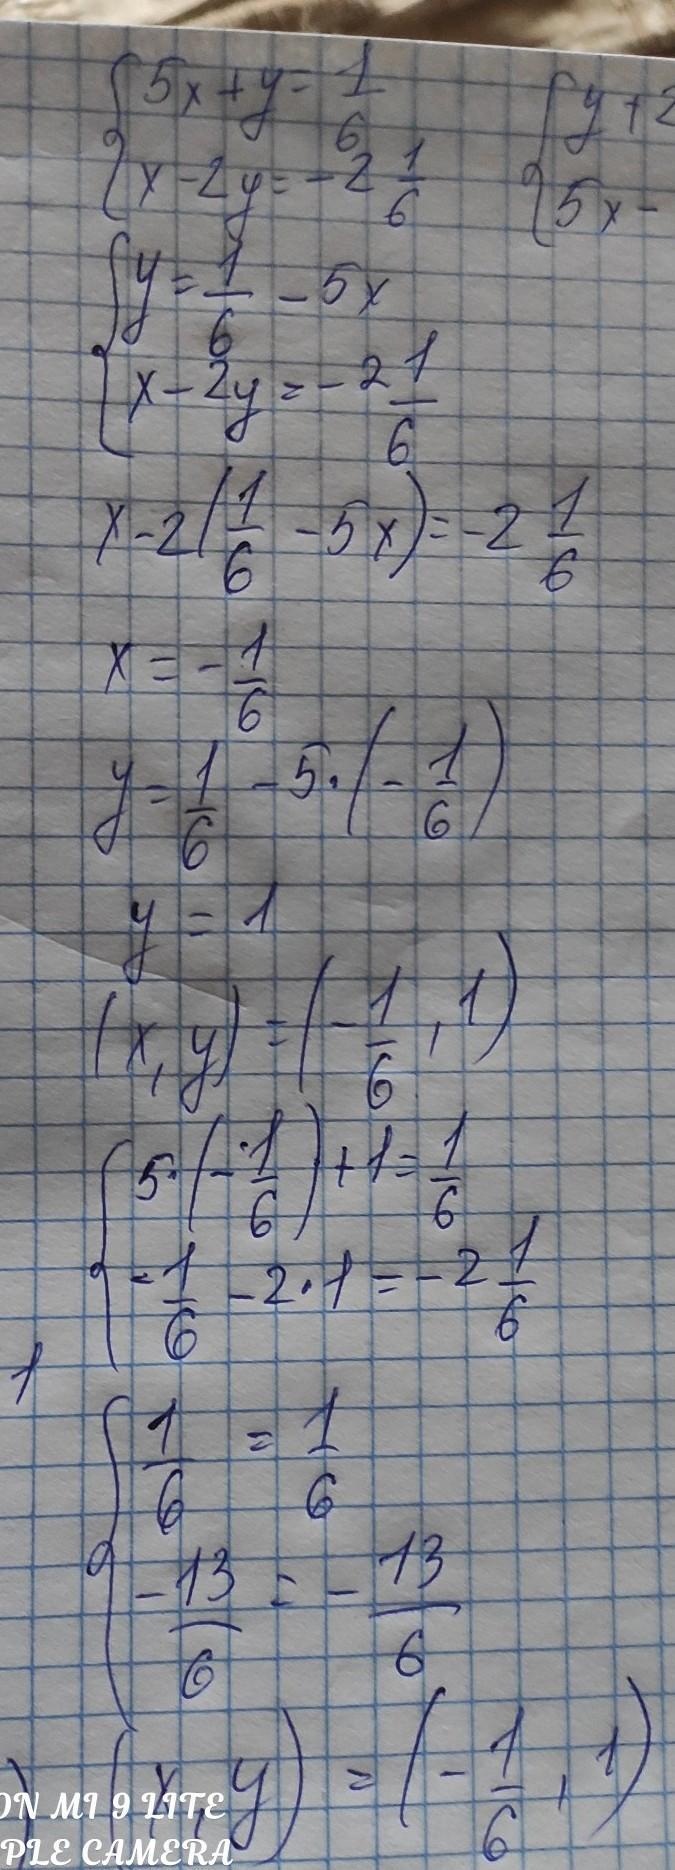 5x+y=1/6
x-2y=-2 1/6
y+2
5x-
y=1/6-5x
x-2y=-2 1/6
x-2(1/6-5x)=-2 1/6
x=-1/6
y=1/6-5·(-1/6)
y=1
(x,y)=(-1/6,1)
5·(-1/6)+1=1/6
-1/6-2·1=-2 1/6
1
1/6=1/6
-13/6=-13/6
) (x,y)=(-1/6,1)
ON MI 9 LITE
PLE CAMERA